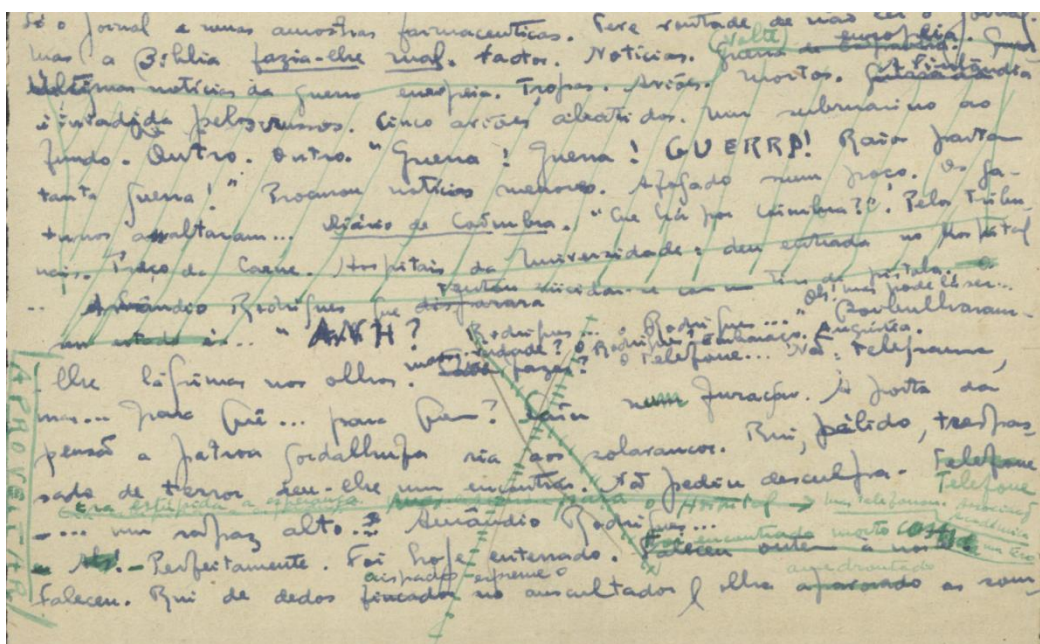 Só o jornal e umas amostras farmaceuticas. Teve vontade de não ler o jornal.
mas a Biblia fazia-lhe mal. Factos. Noticias. (Volte) Guerra europeia.
Ultimas noticias da guerra europeia. Tropas. Aviões. Mortos. A Finlandia
é invadida pelos russos. Cinco aviões abatidos. Um submarino ao
fundo. Outro. Outro. "Guerra! Guerra! GUERRA! Raios partam
tanta guerra!" Procurou noticias menores. Afogado num poço. Os ga-
tunos assaltaram... Diário de Coimbra. "Que há por Coimbra?". Pelos Tribu-
nais. Preço da Carne. Hospitais da Universidade: deu entrada no Hospital
... Amândio Rodrigues que disparara
tentou suicidar-se com um tiro de pistola.
Oh! mas pode lá ser...
em estado de... " ANH? Rodrigues... o Rodrigues..." Borbulharam-
Rodrigues? Embaraço. Angústia.
lhe lágrimas nos olhos. fazer? o Telefone... Não: telegrama,
mas... para quê... para quem? Saiu num furacão. À porta da
pensão a patroa gordalhufa ria aos solavancos. Rui, pálido, trespas-
sado de terror deu-lhe um encontrão. Não pediu desculpa. Telefone
Telefone
Era estúpida a esperança para o Hospital → um telefonema
-... um rapaz alto... Amândio Rodrigues...
Foi encontrado morto
- Ah! - Perfeitamente. Foi hoje enterrado. Faleceu ontem à noite
amedrontado
Faleceu. Rui de dedos fincados no auscultador olha apavorado as som-
APROVEITAR